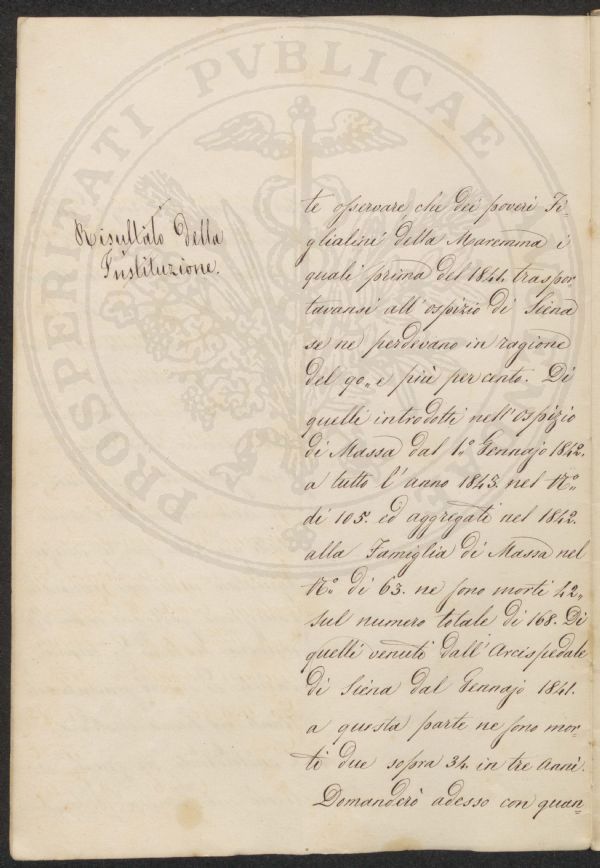 PROSPERITATI PVBLICAE
Risultato della
Instituzione.
te osservare, che dei poveri Fi-
gliolini della Maremma i
quali prima del 1841. traspor
tavansi all'ospizio di Siena
se ne perdevano in ragione
del 90,, e più per cento. Di
quelli introdotti nell'ospizio
di Massa dal 1.º Gennajo 1842.
a tutto l'anno 1843. nel Nº,,
di 105. ed aggregati nel 1842.
alla Famiglia di Massa nel
Nº di 63. ne sono morti 42,,
sul numero totale di 168. Di
quelli venuti dall'Arcispedale
di Siena dal Gennajo 1841.
a questa parte ne sono mor-
ti due sopra 34. in tre anni.
Domanderò adesso con quan-